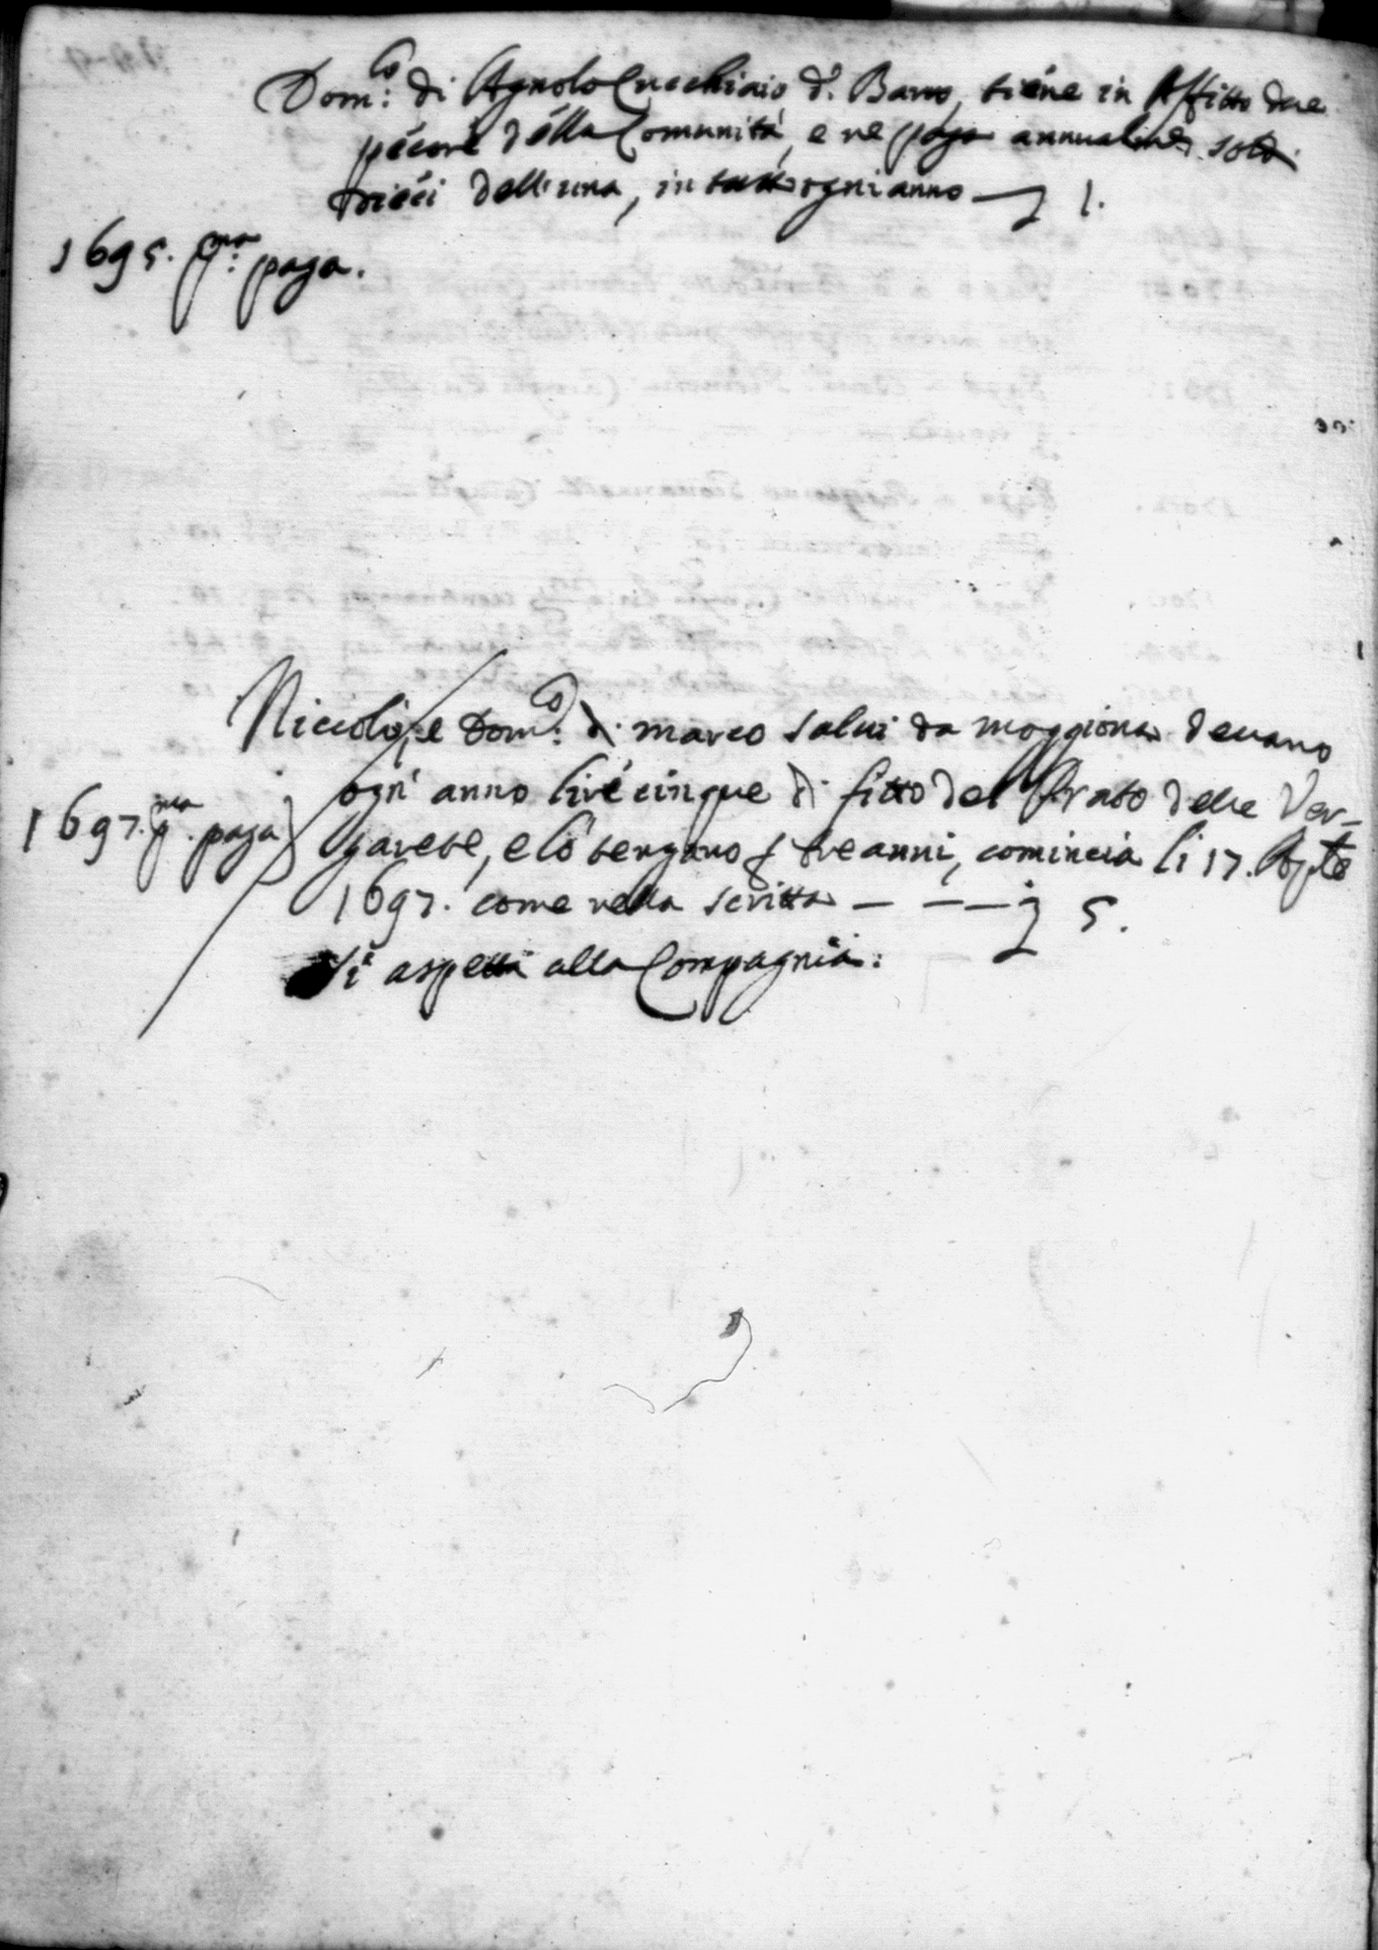 Dom:co di Agnolo Cucchiaio d. Barro, tiene in Affitto due
pecore della Comunità, e ne paga annualme. soldi
dieci dell'una, in tutto ogni anno — 1.
1695. p:ma paga.
Niccolò, e Dom:co di marco salui da moggiona deuano
ogni anno lire cinque di fitto del Prato delle Ver-
1697. p.ma paga
garete, e lo tengano p tre anni, comincia li 17. Agte
1697. come nella scritta — — — 5.
Si aspetta alla Compagnia.